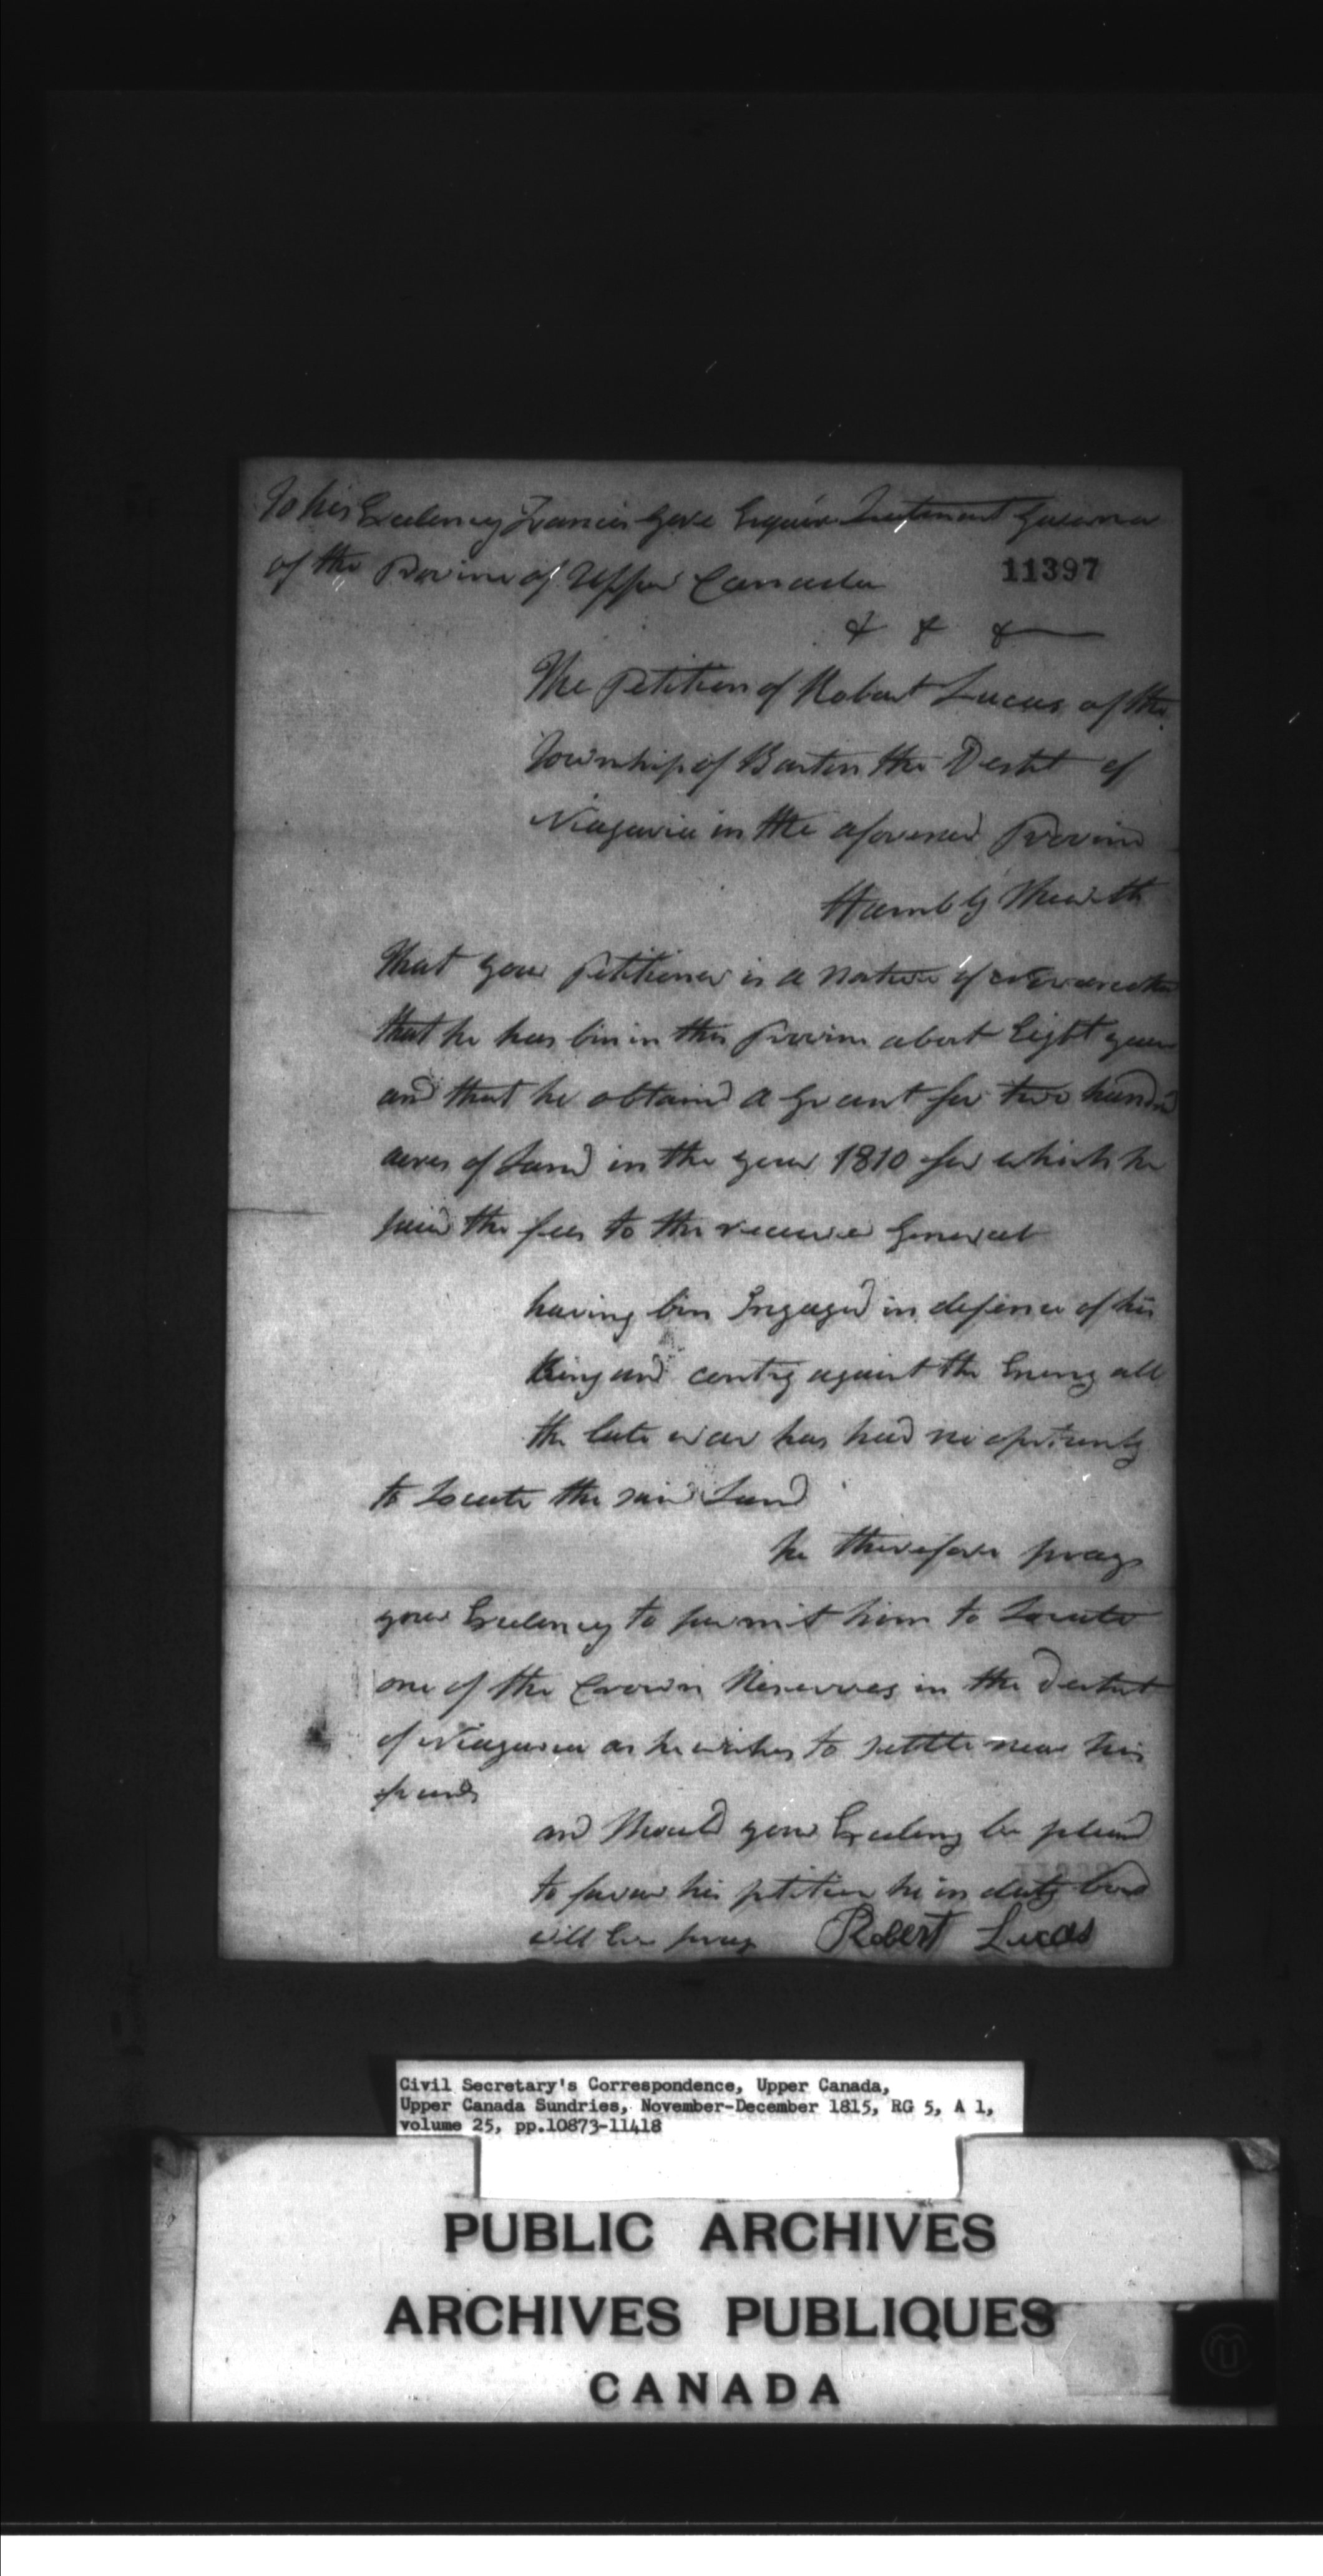 To his Excelency Francis Gore Esquire Lieutenant Governor
of the Province of Upper Canada
11397
& & &
The Petition of Robert Lucas of the
Township of Barton the Destt of
Niagaria in the aforesaid Province
Humbly Sheweth
That your Petitioner is a Native of
that he has bin in this Province about Eight years
and that he obtained a Grant for two hundred
acres of Land in the year 1810 for which he
paid the fees to the receiver General
having bin Ingaged in defence of his
King and contry against the Enemy all
the late war has had no oportunity
to Locate the said Land
he therefore prays
your Excelency to permit him to Locate
one of the Crown Reserves in the Destrict
of Niagaria as he wishes to settle near his
and Should your Excelency be pleased
to favour his petition he in duty bound
will ever pray Robert Lucas
Civil Secretary's Correspondence, Upper Canada,
Upper Canada Sundries, November-December 1815, RG 5, A 1,
volume 25, pp.10873-11418
PUBLIC ARCHIVES
ARCHIVES PUBLIQUES
CANADA